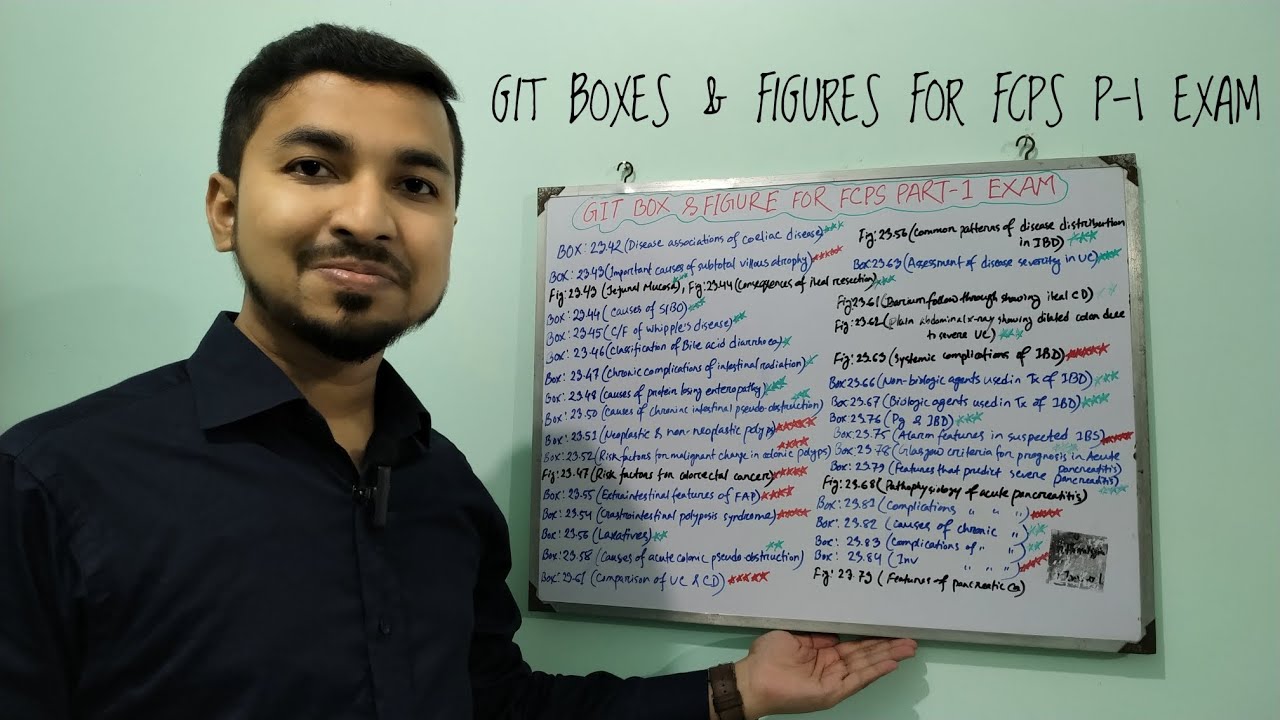 GIT BOXES & FIGURES FOR FCPS P-1 EXAM
GIT BOX & FIGURE FOR FCPS PART-1 EXAM
BOX: 23.42 (Disease associations of coeliac disease)***
BOX: 23.43 (Important causes of subtotal villous atrophy)*****
Fig: 23.43 (Jejunal Mucosa)**, Fig: 23.44 (Consequences of ileal resection)***
BOX: 23.44 (causes of SIBO)**
BOX: 23.45 (C/F of Whipple's disease)**
BOX: 23.46 (Classification of Bile acid diarrhoea)*
BOX: 23.47 (Chronic complications of intestinal radiation)*
BOX: 23.48 (causes of protein losing enteropathy)**
BOX: 23.50 (causes of chronic intestinal pseudo-obstruction)**
BOX: 23.51 (Neoplastic & non-neoplastic polyp)*****
Box: 23.52 (Risk factors for malignant change in colonic polyps)****
Fig: 23.47 (Risk factors for colorectal cancer)****
Box: 23.55 (Extraintestinal features of FAP)****
Box: 23.54 (Gastrointestinal polyposis syndrome)****
Box: 23.56 (Laxatives)**
Box: 23.58 (Causes of acute colonic pseudo obstruction)**
Box: 23.61 (Comparison of UC & CD)*****
Fig: 23.56 (Common patterns of disease distribution
in IBD)***
Box: 23.63 (Assessment of disease severity in UC)***
Fig: 23.61 (Barium follow through showing ileal CD)
Fig: 23.62 (Plain abdominal x-ray showing dilated colon due
to severe UC)***
Fig: 23.63 (Systemic complications of IBD)*****
Box 23.66 (Non-biologic agents used in Tx of IBD)***
Box: 23.67 (Biologic agents used in Tx of IBD)***
Box: 23.76 (Pg & IBD)***
Box: 23.75 (Alarm features in suspected IBS)*****
Box 23.78 (Glasgow criteria for prognosis in Acute
pancreatitis)
Box: 23.79 (Features that predict severe pancreatitis)
Fig: 23.68 (Pathophysiology of acute pancreatitis)***
Box: 23.81 (Complications " " ")****
Box: 23.82 (causes of chronic ")**
Box: 23.83 (Complications of " ")**
Box: 23.84 (Inv " " ")****
Fig: 23.73 (Features of pancreatic Ca)